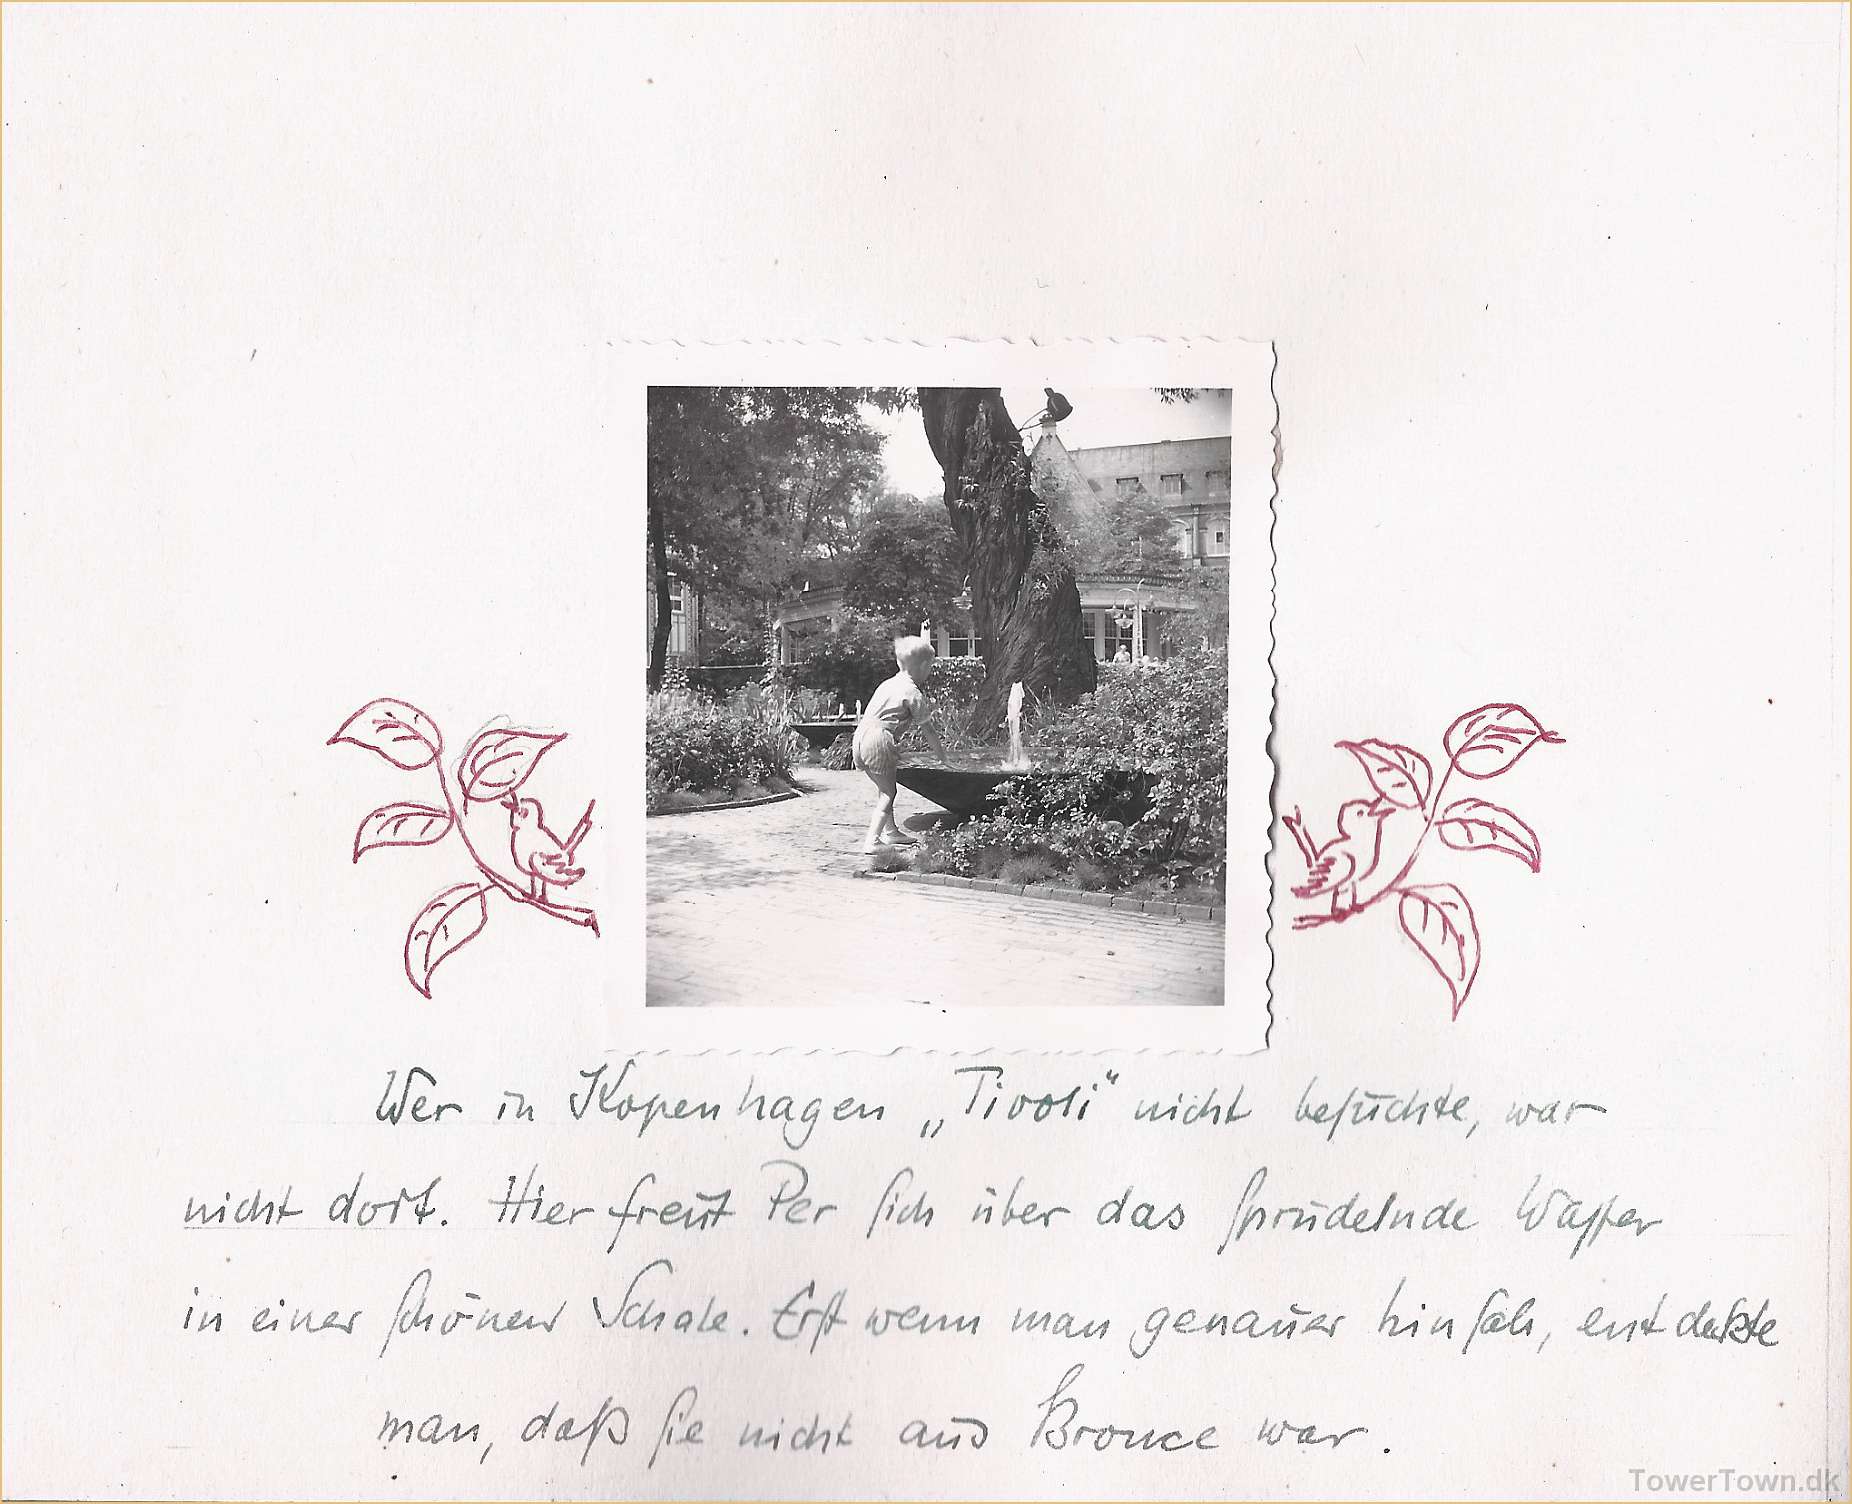 Wer in Kopenhagen „Tivoli“ nicht besuchte, war
nicht dort. Hier freut Per sich über das sprudelnde Wasser
in einer schönen Schale. Erst wenn man genauer hinsah, entdekte
man, daß sie nicht aus Bronce war.
TowerTown.dk